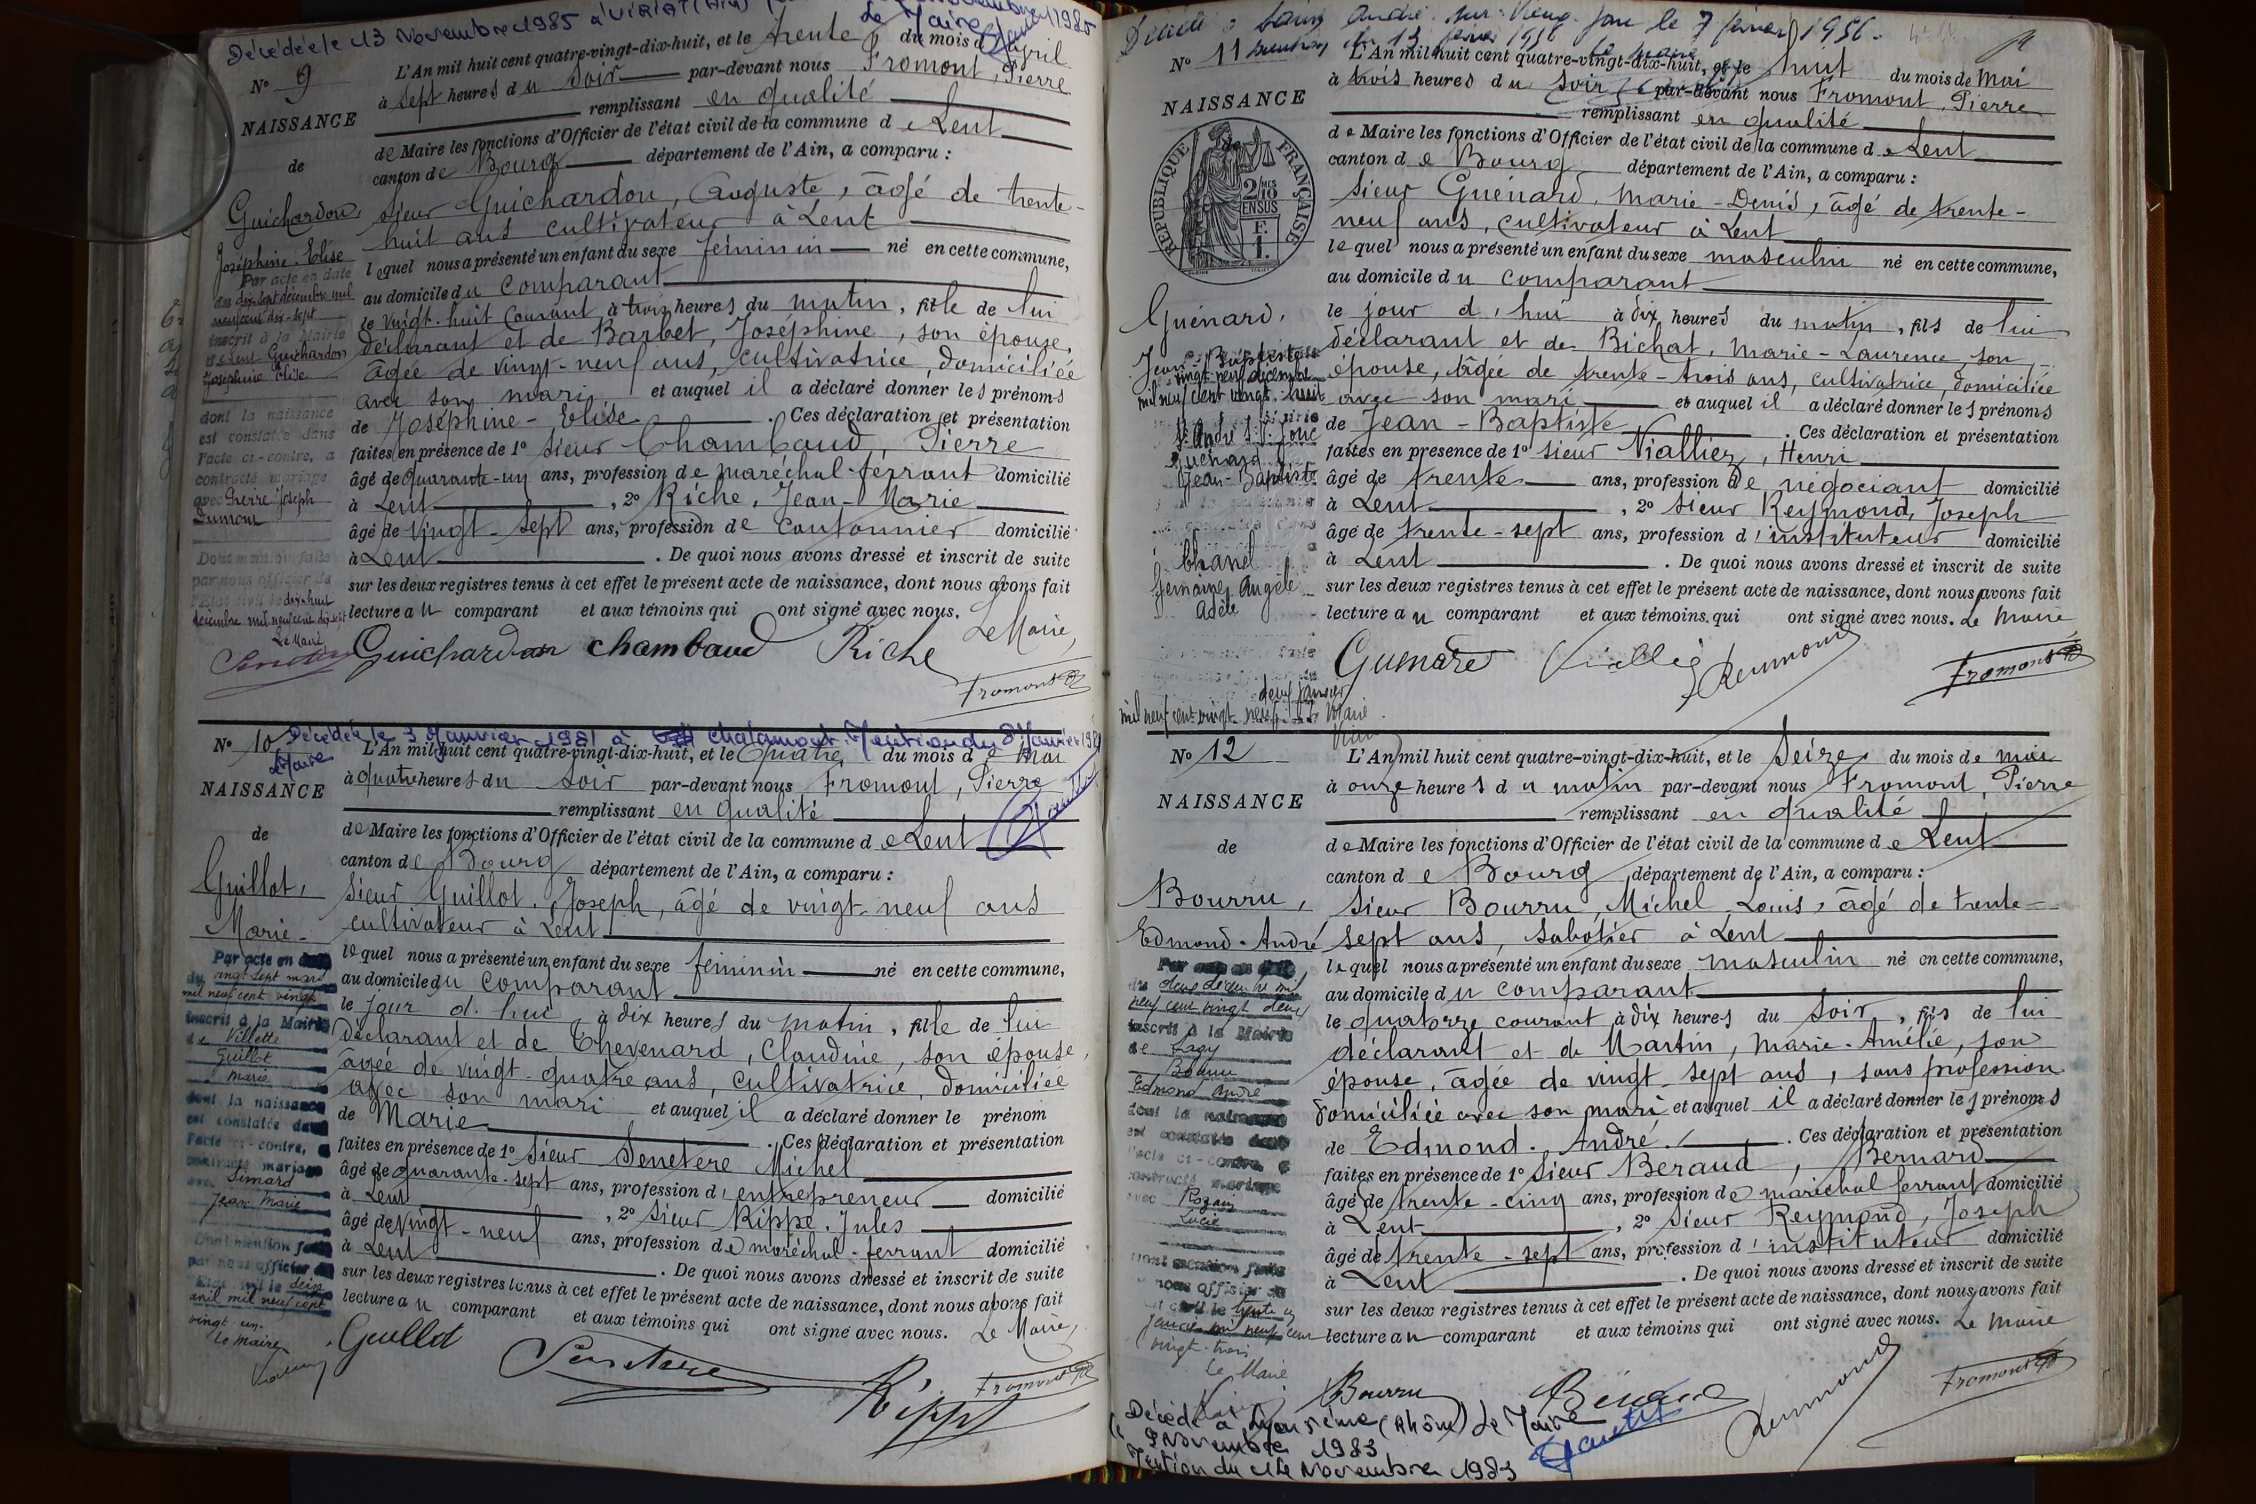 Décédée le 13 Novembre 1985 à VIRIAT (Ain)
Le Maire
N° 9
NAISSANCE
de
Guichardon,
Joséphine-Elise
Par acte en date
du dix sept décembre mil
neuf cent dix-sept
inscrit à la Mairie
de Lent Guichardon
Joséphine Elise
dont la naissance
est constatée dans
l'acte ci-contre, a
contracté mariage
avec Pierre Joseph
Dumont
Dont mention faite
par nous officier de
l'Etat civil le dix-huit
décembre mil neuf cent dix sept
Le Maire
L'An mil huit cent quatre-vingt-dix-huit, et le trente du mois d'Avril
à sept heures du soir par-devant nous Fromont, Pierre
remplissant en qualité
de Maire les fonctions d'Officier de l'état civil de la commune de Lent
canton de Bourg département de l'Ain, a comparu :
sieur Guichardon, Auguste, âgé de trente-
huit ans cultivateur à Lent
lequel nous a présenté un enfant du sexe féminin né en cette commune,
au domicile du comparant
le vingt-huit courant à trois heures du matin, fille de lui
déclarant et de Barbet, Joséphine, son épouse,
âgée de vingt-neuf ans, cultivatrice, domiciliée
avec son mari et auquel il a déclaré donner les prénoms
de Joséphine-Elise . Ces déclaration et présentation
faites en présence de 1° sieur Chambaud, Pierre
âgé de quarante-un ans, profession de maréchal-ferrant domicilié
à Lent , 2° Riche, Jean-Marie
âgé de vingt-sept ans, profession de cantonnier domicilié
à Lent . De quoi nous avons dressé et inscrit de suite
sur les deux registres tenus à cet effet le présent acte de naissance, dont nous avons fait
lecture au comparant et aux témoins qui ont signé avec nous. Le Maire,
Guichardon chambaud Riche
Fromont
Décédée le 3 Janvier 1981 à Chalamont. Mention du Janvier 1981
Le Maire
N° 10
NAISSANCE
de
Guillot,
Marie-
Par acte en date
du vingt sept mars
mil neuf cent vingt
inscrit à la Mairie
de Villette
Guillot
Marie
dont la naissance
est constatée dans
l'acte ci-contre, a
contracté mariage
avec Simard
Jean Marie
Dont mention faite
par nous officier de
l'Etat civil le deux
avril mil neuf cent
vingt un.
Le Maire
L'An mil huit cent quatre-vingt-dix-huit, et le quatre du mois de Mai
à quatre heures du soir par-devant nous Fromont, Pierre
remplissant en qualité
de Maire les fonctions d'Officier de l'état civil de la commune de Lent
canton de Bourg département de l'Ain, a comparu :
sieur Guillot, Joseph, âgé de vingt-neuf ans
cultivateur à Lent
lequel nous a présenté un enfant du sexe féminin né en cette commune,
au domicile du comparant
le jour d'hui à dix heures du matin, fille de lui
déclarant et de Thevenard, Claudine, son épouse,
âgée de vingt-quatre ans, cultivatrice, domiciliée
avec son mari et auquel il a déclaré donner le prénom
de Marie . Ces déclaration et présentation
faites en présence de 1° sieur Senetere Michel
âgé de quarante-sept ans, profession d'entrepreneur domicilié
à Lent , 2° sieur Rippe, Jules
âgé de vingt-neuf ans, profession de maréchal-ferrant domicilié
à Lent . De quoi nous avons dressé et inscrit de suite
sur les deux registres tenus à cet effet le présent acte de naissance, dont nous avons fait
lecture au comparant et aux témoins qui ont signé avec nous. Le Maire,
Guillot Senetere Rippe
Fromont
Décédé à Saint André-sur-Vieux-Jonc le 7 février 1956.
Le Maire
N° 11
NAISSANCE
REPUBLIQUE FRANÇAISE
2/10 EN SUS
F. 1.
Guénard,
Jean-Baptiste
vingt-neuf décembre
mil neuf cent vingt-huit
St André S. V. Jonc
Guénard
Jean-Baptiste
Chanel
Germaine Angèle
Adèle
deux janvier
mil neuf cent vingt-neuf Le Maire
L'An mil huit cent quatre-vingt-dix-huit, et le huit du mois de Mai
à trois heures du soir par-devant nous Fromont, Pierre
remplissant en qualité
de Maire les fonctions d'Officier de l'état civil de la commune de Lent
canton de Bourg département de l'Ain, a comparu :
sieur Guénard, Marie-Denis, âgé de trente-
neuf ans, cultivateur à Lent
lequel nous a présenté un enfant du sexe masculin né en cette commune,
au domicile du comparant
le jour d'hui à dix heures du matin, fils de lui
déclarant et de Bichat, Marie-Laurence, son
épouse, âgée de trente-trois ans, cultivatrice, domiciliée
avec son mari et auquel il a déclaré donner les prénoms
de Jean-Baptiste . Ces déclaration et présentation
faites en présence de 1° sieur Viallier, Henri
âgé de trente ans, profession de négociant domicilié
à Lent , 2° sieur Reymond, Joseph
âgé de trente-sept ans, profession d'instituteur domicilié
à Lent . De quoi nous avons dressé et inscrit de suite
sur les deux registres tenus à cet effet le présent acte de naissance, dont nous avons fait
lecture au comparant et aux témoins qui ont signé avec nous. Le Maire
Guénard Viallier Reymond
Fromont
N° 12
NAISSANCE
de
Bourru,
Edmond-André
Par acte en date
du deux décembre mil
neuf cent vingt deux
inscrit à la Mairie
de
Bourru
Edmond André
dont la naissance
est constatée dans
l'acte ci-contre, a
contracté mariage
avec
Lucie
Dont mention faite
par nous officier de
l'Etat civil le trente un
janvier mil neuf cent
vingt-trois
Le Maire
L'An mil huit cent quatre-vingt-dix-huit, et le Seize du mois de mai
à onze heures du matin par-devant nous Fromont, Pierre
remplissant en qualité
de Maire les fonctions d'Officier de l'état civil de la commune de Lent
canton de Bourg département de l'Ain, a comparu :
sieur Bourru, Michel-Louis, âgé de trente-
sept ans, sabotier à Lent
lequel nous a présenté un enfant du sexe masculin né en cette commune,
au domicile du comparant
le quatorze courant à dix heures du soir, fils de lui
déclarant et de Martin, Marie-Amélie, son
épouse, âgée de vingt-sept ans, sans profession
domiciliée avec son mari et auquel il a déclaré donner les prénoms
de Edmond-André. . Ces déclaration et présentation
faites en présence de 1° sieur Beraud, Bernard
âgé de trente-cinq ans, profession de maréchal ferrant domicilié
à Lent , 2° sieur Reymond, Joseph
âgé de trente-sept ans, profession d'instituteur domicilié
à Lent . De quoi nous avons dressé et inscrit de suite
sur les deux registres tenus à cet effet le présent acte de naissance, dont nous avons fait
lecture au comparant et aux témoins qui ont signé avec nous. Le Maire
Bourru Béraud Reymond
Fromont
Décédé à (Rhône) Le Maire
9 Novembre 1983
Mention du 14 Novembre 1983